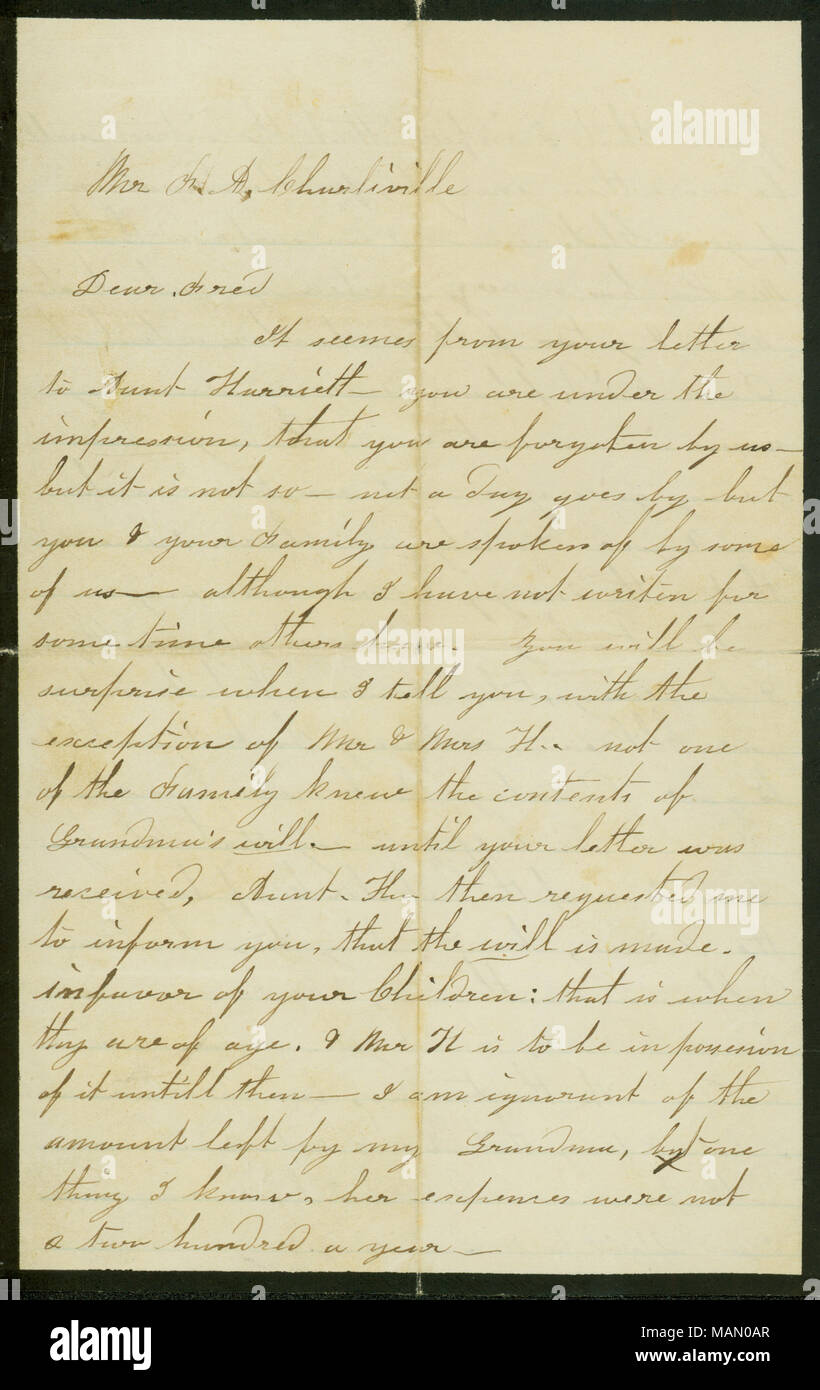 Mr F. A. Churliville
Dear Fred
It seemes from your letter
to Aunt Harriett — you are under the
impression, that you are forgoten by us —
but it is not so — not a Day goes by but
you & your Family are spoken of by some
of us — although I have not writen for
some time others have. You will be
surprise when I tell you, with the
exception of Mr & Mrs H.. not one
of the Family knew the contents of
Grandma's will. — until your letter was
received, Aunt. H— then requested me
to inform you, that the will is made.
infavor of your Children: that is when
thy are of age. & Mr H is to be in possesion
of it untill then — I am ignorant of the
amount left by my Grandma, but one
thing I know, her expences were not
a two hundred a year —
alamy
alamy
alamy
a
a
a
alamy
Image ID: MAN0AR
www.alamy.com